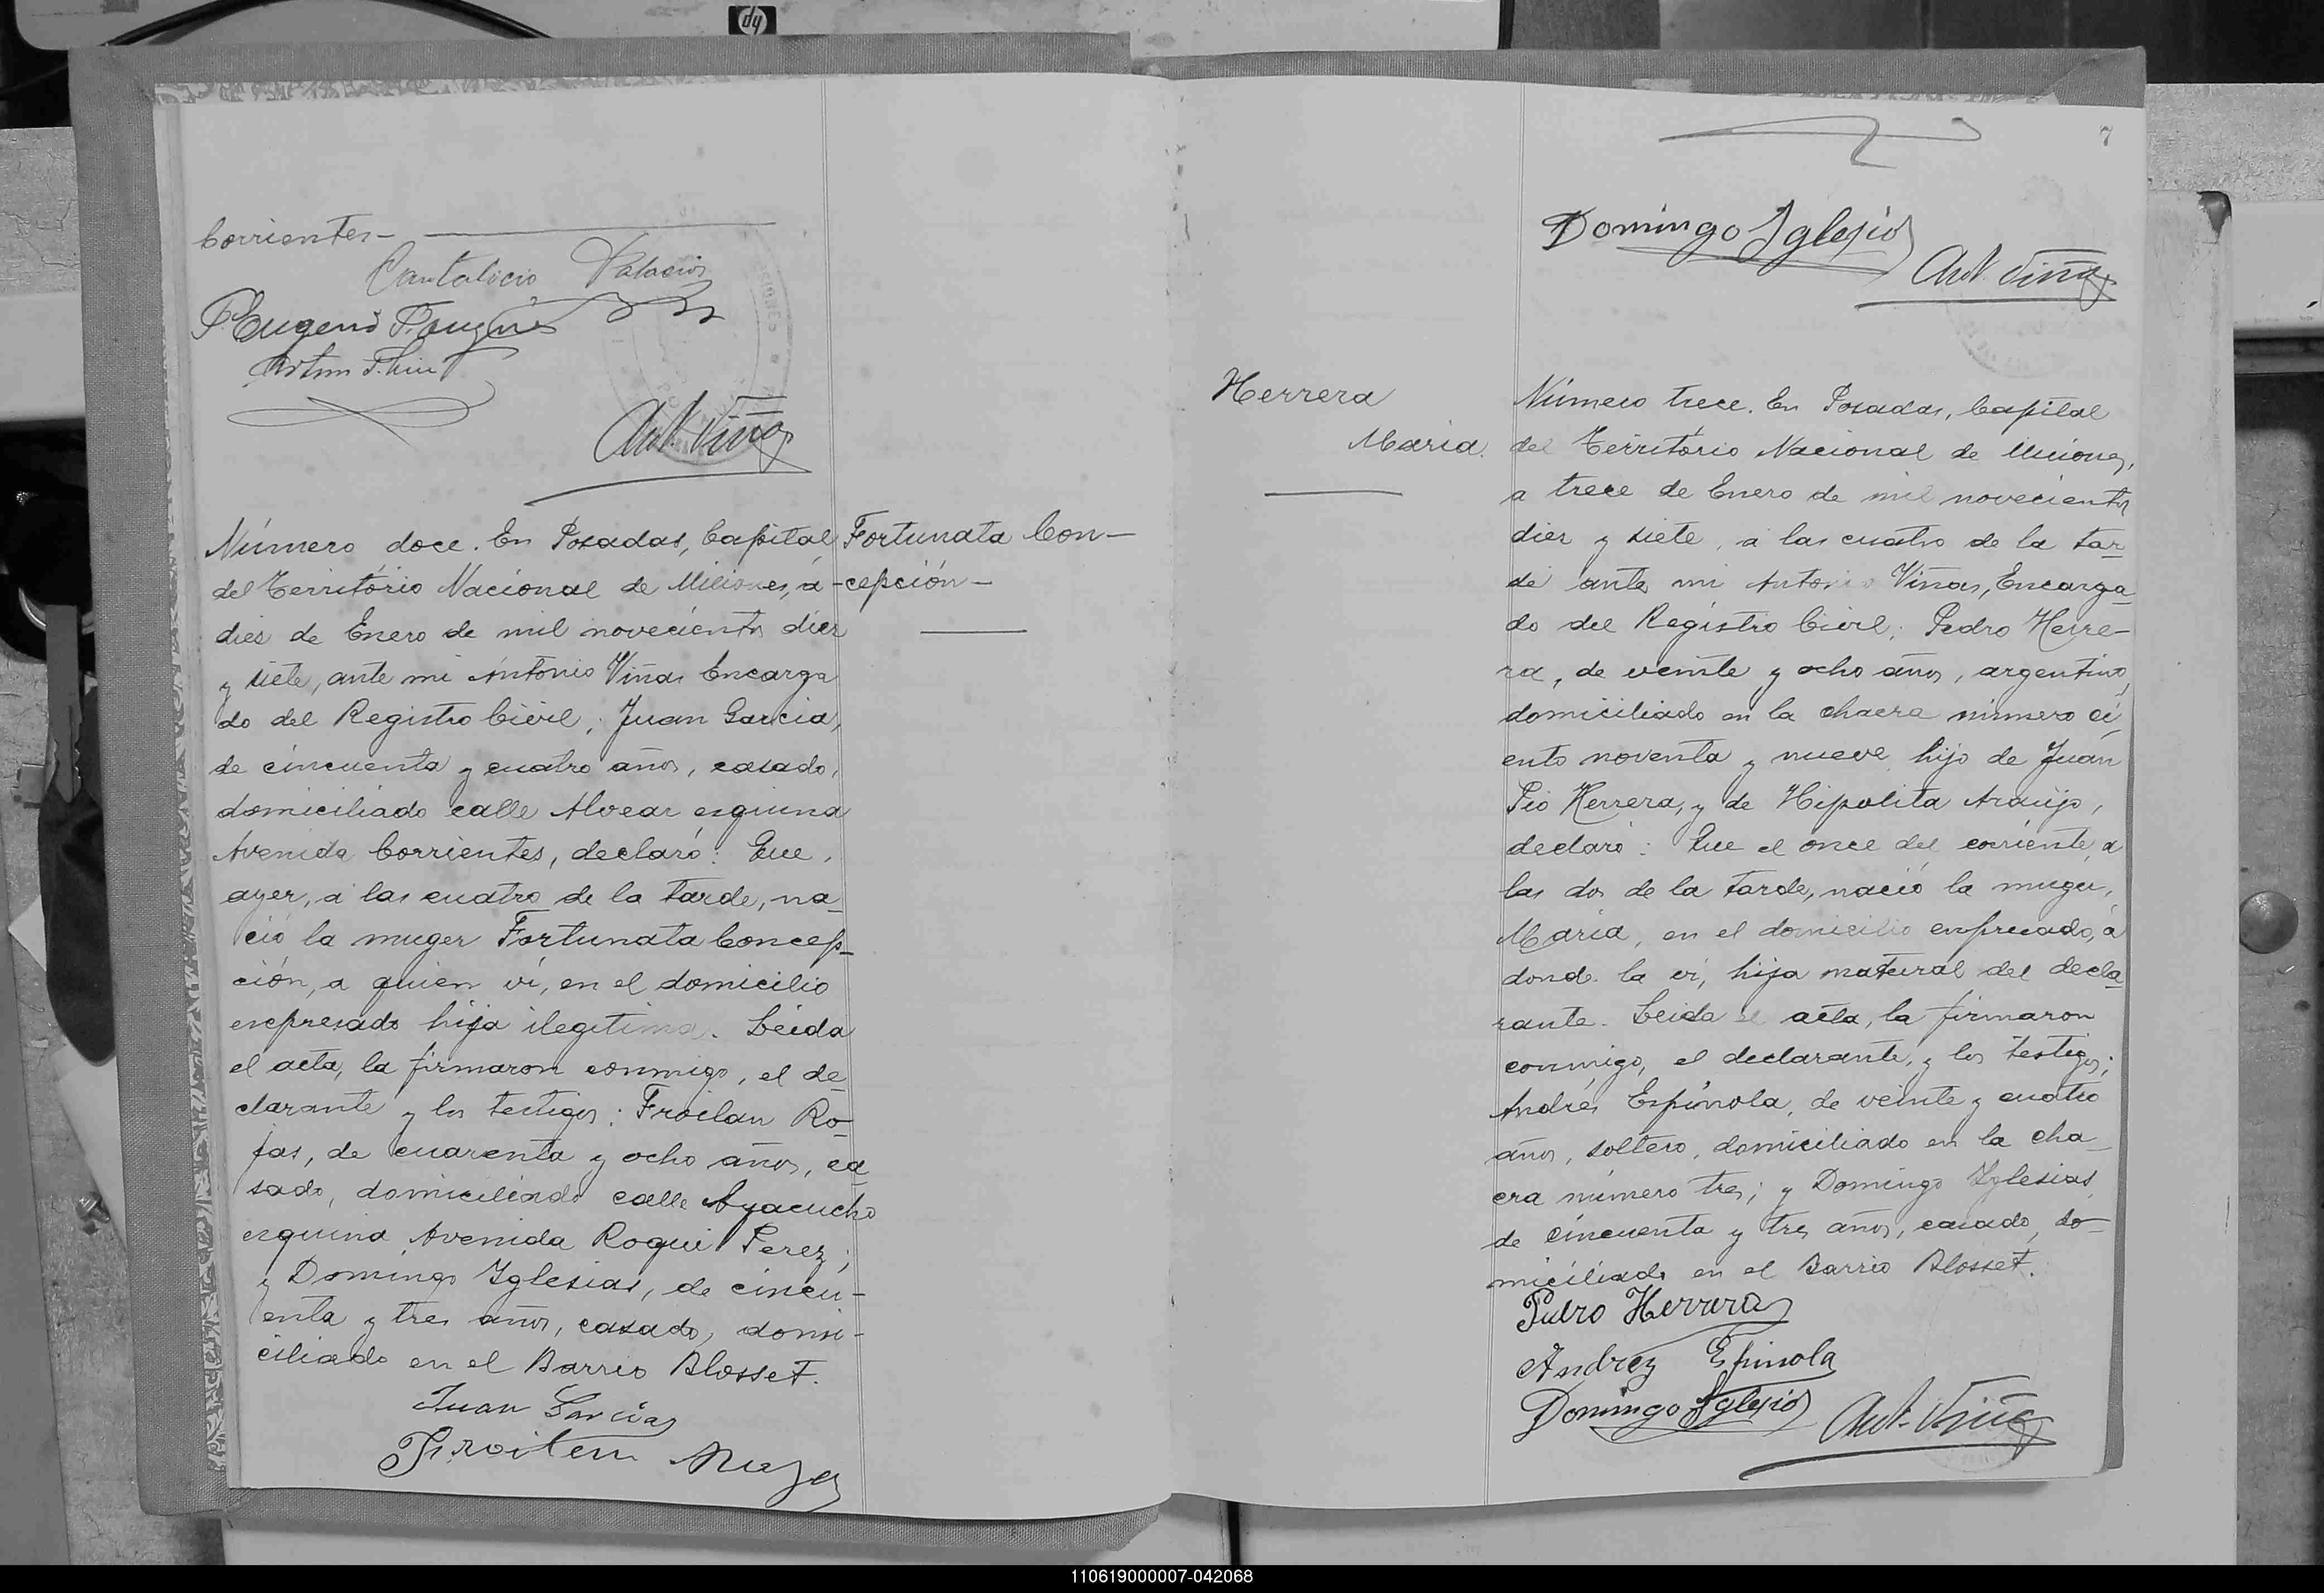 Corrientes—
Cantalicio Palacios
Ant. Viñas
Número doce. En Posadas, Capital
del Território Nacional de Misiones, á
dies de Enero de mil novecientos diez
y siete, ante mi Antonio Viñas Encarga
do del Registro Civil; Juan Garcia,
de cincuenta y cuatro años, casado,
domiciliado calle Alvear esquina
Avenida Corrientes, declaró: Que,
ayer, a las cuatro de la tarde, na_
ció la muger Fortunata Concep_
ción, a quien ví, en el domicilio
expresado hija ilegitima. Leida
el acta, la firmaron conmigo, el de_
clarante y los testigos: Froilan Ro_
jas, de cuarenta y ocho años, ca_
sado, domiciliado calle Ayacucho
esquina Avenida Roque Perez;
y Domingo Iglesias, de cincu-
enta y tres años, casado, domi-
ciliado en el Barrio Blosset.
Juan Garcia
Froilan
Fortunata Con—
-cepción—
7
Domingo Iglesias
Ant. Viñas
Herrera
Maria.
Número trece. En Posadas, Capital
del Território Nacional de Misiones,
a trece de Enero de mil novecientos
diez y siete, a las cuatro de la tar_
de ante mi Antonio Viñas, Encarga_
do del Registro Civil; Pedro Herre—
ra, de veinte y ocho años, argentino,
domiciliado en la chacra número ci_
ento noventa y nueve hijo de Juan
Pio Herrera, y de Hipolita Araujo,
declaró: Que el once del corriente, a
las dos de la tarde, nació la muger,
Maria, en el domicilio expresado, á
donde la ví, hija natural del decla_
rante. Leida el acta, la firmaron
conmigo, el declarante, y los testigos;
Andrés Espinola, de veinte y cuatro
años, soltero, domiciliado en la cha_
cra número tres; y Domingo Iglesias
de cincuenta y tres años, casado, do—
miciliado en el Barrio Blosset.
Pedro Herrera
Andrez Espinola
Domingo Iglesias
Ant. Viñas
110619000007-042068